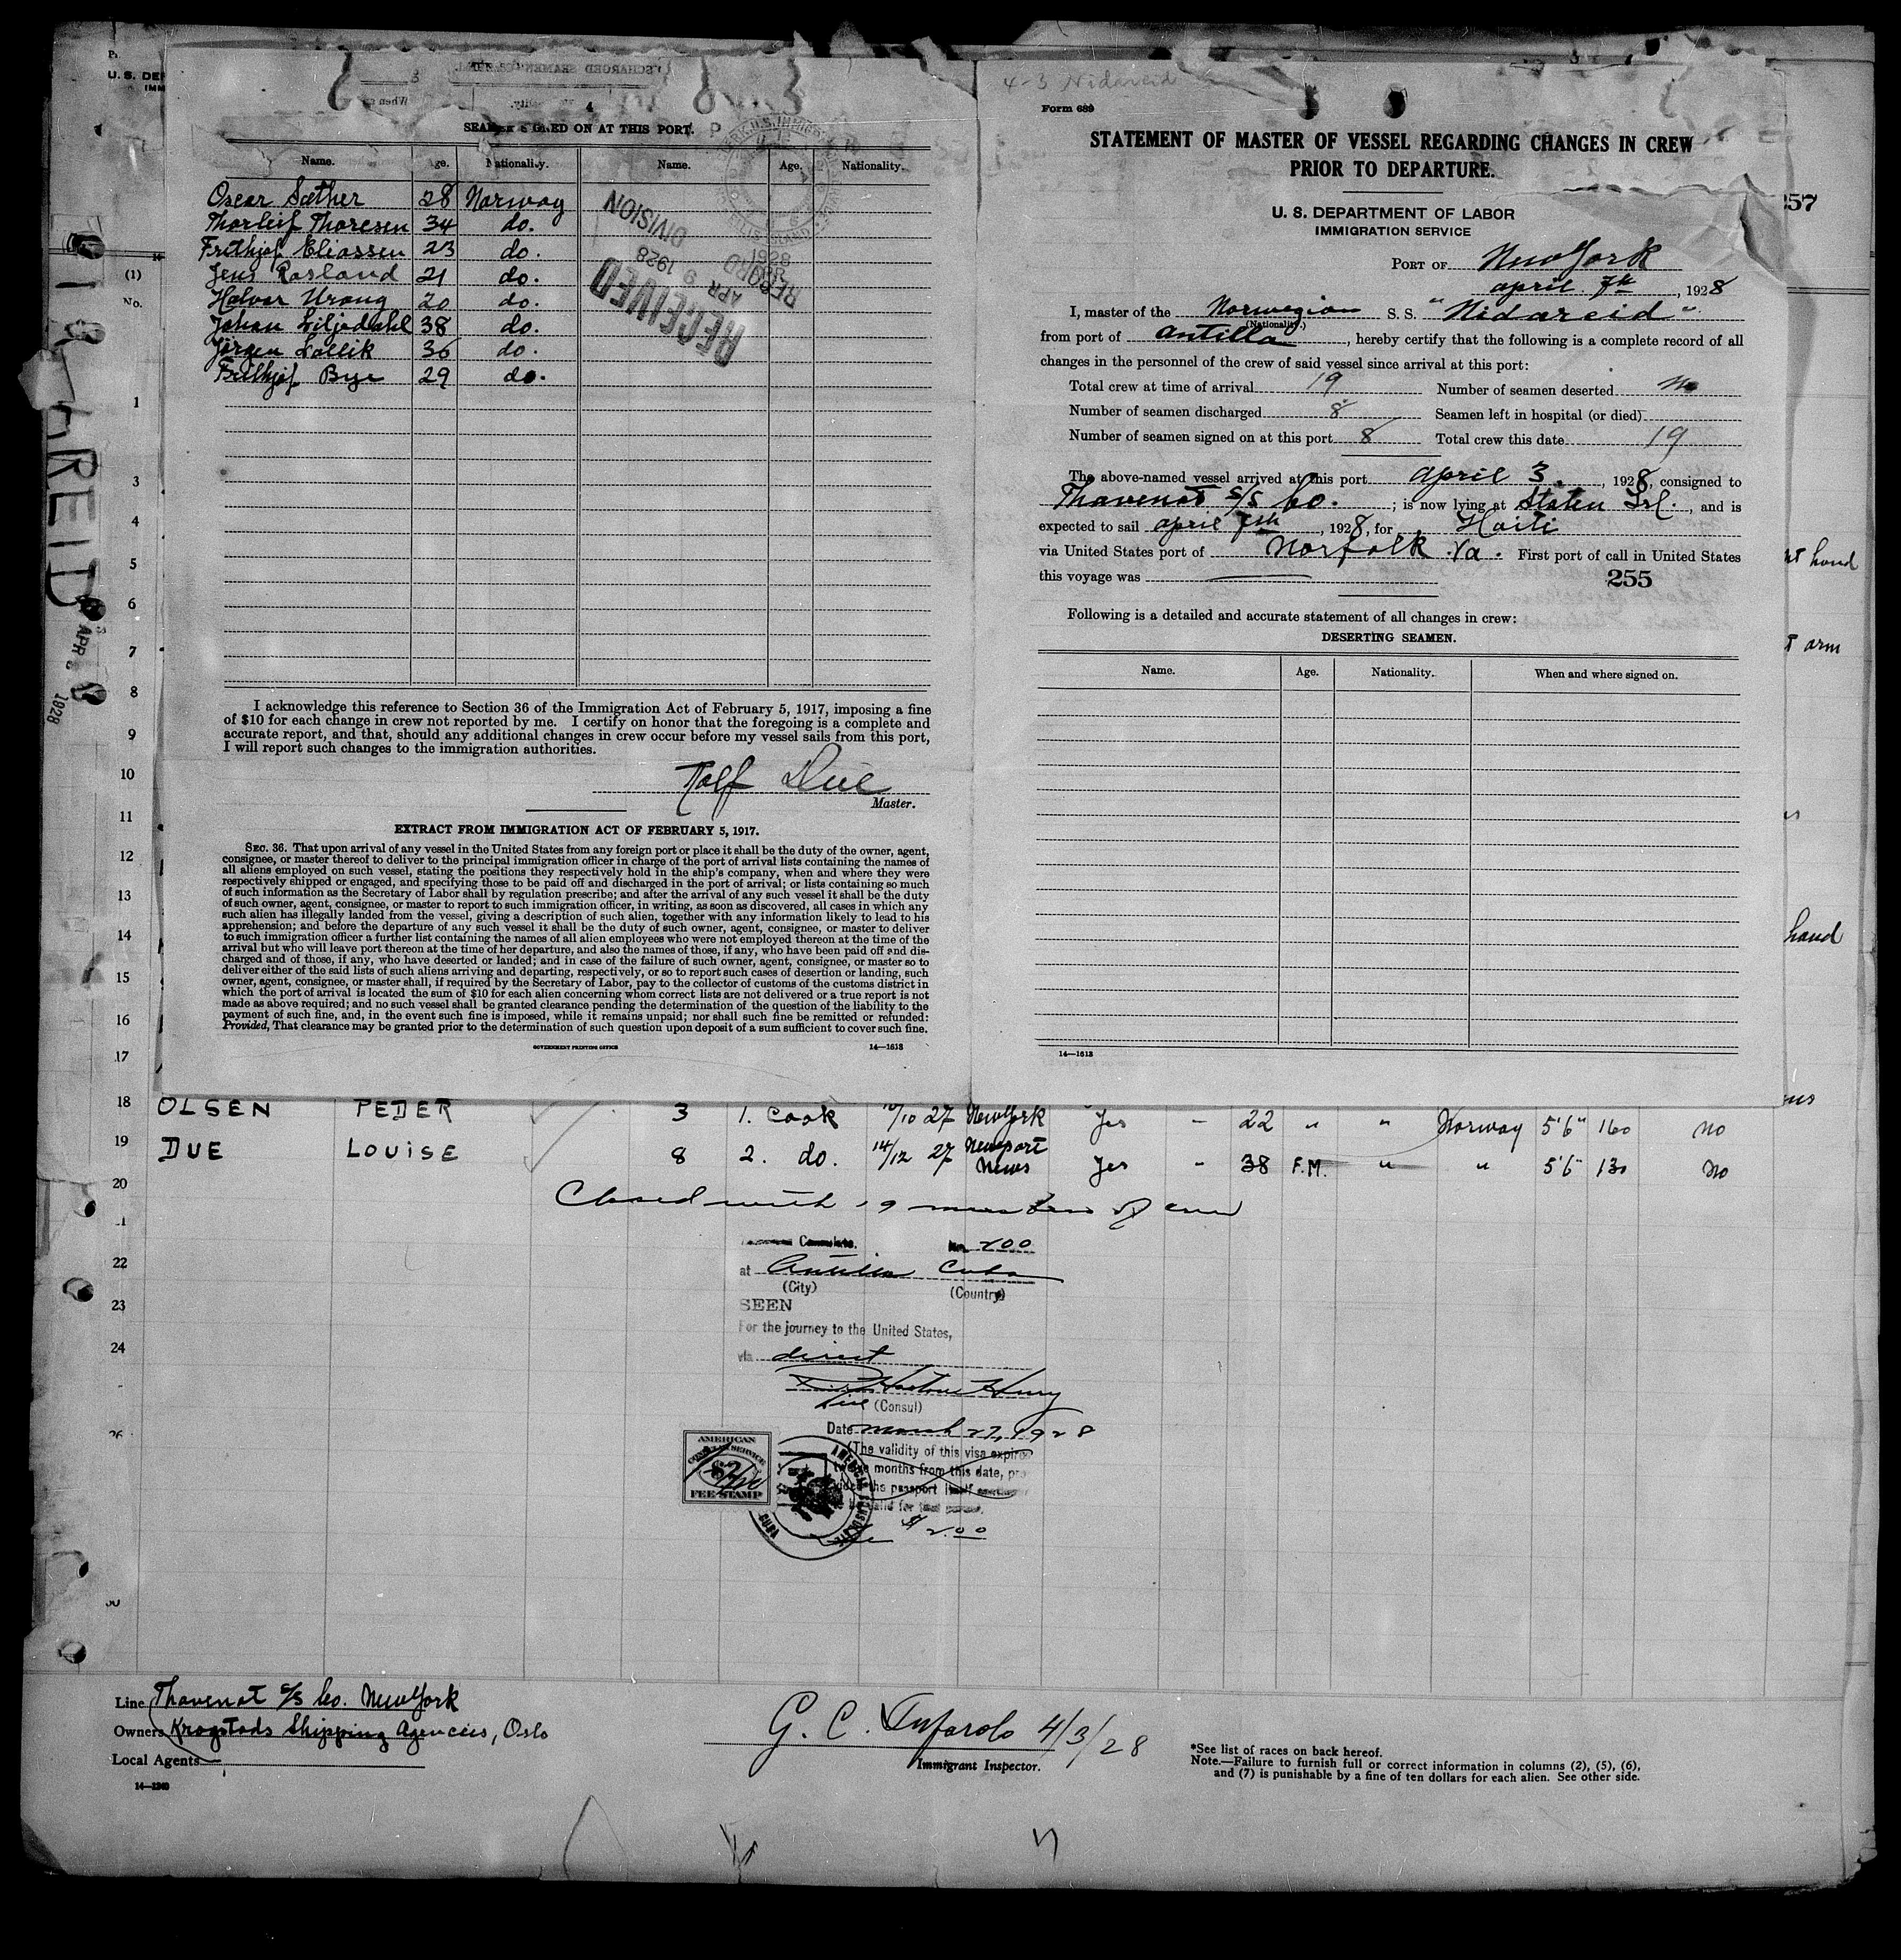 U. S. DE
IMM
(1)
No.
SEAMEN SIGNED ON AT THIS PORT.
Name. Age. Nationality. Name. Age. Nationality.
Oscar Sæther 28 Norway
Thorleif Thoresen 34 do.
Frithjof Eliassen 23 do.
Jens Rosland 21 do.
Halvor Urang 20 do.
Johan Liljedahl 38 do.
Jörgen Lallik 36 do.
Frithjof Bye 29 do.
RECEIVED
APR 9 1928
RECORD
DIVISION
I acknowledge this reference to Section 36 of the Immigration Act of February 5, 1917, imposing a fine
of $10 for each change in crew not reported by me. I certify on honor that the foregoing is a complete and
accurate report, and that, should any additional changes in crew occur before my vessel sails from this port,
I will report such changes to the immigration authorities.
Rolf Due
Master.
EXTRACT FROM IMMIGRATION ACT OF FEBRUARY 5, 1917.
SEC. 36. That upon arrival of any vessel in the United States from any foreign port or place it shall be the duty of the owner, agent,
consignee, or master thereof to deliver to the principal immigration officer in charge of the port of arrival lists containing the names of
all aliens employed on such vessel, stating the positions they respectively hold in the ship's company, when and where they were
respectively shipped or engaged, and specifying those to be paid off and discharged in the port of arrival; or lists containing so much
of such information as the Secretary of Labor shall by regulation prescribe; and after the arrival of any such vessel it shall be the duty
of such owner, agent, consignee, or master to report to such immigration officer, in writing, as soon as discovered, all cases in which any
such alien has illegally landed from the vessel, giving a description of such alien, together with any information likely to lead to his
apprehension; and before the departure of any such vessel it shall be the duty of such owner, agent, consignee, or master to deliver
to such immigration officer a further list containing the names of all alien employees who were not employed thereon at the time of the
arrival but who will leave port thereon at the time of her departure, and also the names of those, if any, who have been paid off and dis-
charged and of those, if any, who have deserted or landed; and in case of the failure of such owner, agent, consignee, or master so to
deliver either of the said lists of such aliens arriving and departing, respectively, or so to report such cases of desertion or landing, such
owner, agent, consignee, or master shall, if required by the Secretary of Labor, pay to the collector of customs of the customs district in
which the port of arrival is located the sum of $10 for each alien concerning whom correct lists are not delivered or a true report is not
made as above required; and no such vessel shall be granted clearance pending the determination of the question of the liability to the
payment of such fine, and, in the event such fine is imposed, while it remains unpaid; nor shall such fine be remitted or refunded:
Provided, That clearance may be granted prior to the determination of such question upon deposit of a sum sufficient to cover such fine.
GOVERNMENT PRINTING OFFICE 14—1613
4-3 Nidareid
Form 689
STATEMENT OF MASTER OF VESSEL REGARDING CHANGES IN CREW
PRIOR TO DEPARTURE.
U. S. DEPARTMENT OF LABOR
IMMIGRATION SERVICE
257
PORT OF New York
april 7th, 1928
I, master of the Norwegian S. S. "Nidareid"
(Nationality.)
from port of Antilla, hereby certify that the following is a complete record of all
changes in the personnel of the crew of said vessel since arrival at this port:
Total crew at time of arrival 19 Number of seamen deserted no
Number of seamen discharged 8 Seamen left in hospital (or died)
Number of seamen signed on at this port 8 Total crew this date 19
The above-named vessel arrived at this port april 3., 1928, consigned to
Thavenot S/S Co.; is now lying at Staten Isl., and is
expected to sail april 7th, 1928, for Haiti
via United States port of Norfolk Va. First port of call in United States
this voyage was
255
Following is a detailed and accurate statement of all changes in crew:
DESERTING SEAMEN.
Name. Age. Nationality. When and where signed on.
14—1613
hand
arm
hand
REID
APR 3
1928
1
3
4
5
6
7
8
9
10
11
12
13
14
15
16
17
18 OLSEN PEDER 3 1. Cook 10/10 27 New York Yes - 22 " " Norway 5'6" 160 no
19 DUE LOUISE 8 2. do. 14/12 27 Newport News Yes - 38 F.M. " " 5'6" 130 no
20
Closed with 19 members of crew
22
23
24
Consulate. No. 200
at Antilla Cuba
(City) (Country)
SEEN
For the journey to the United States,
via direct
(Consul)
Date March 27, 1928
(The validity of this visa expires
months from this date, pro
the passport itself
be valid for that period.
Fee $2.00
AMERICAN
CONSULAR SERVICE
FEE STAMP
AMERICAN CONSULATE
CUBA
Line Thavenot S/S Co. New York
Owners Krogstads Shipping Agencies, Oslo
Local Agents
14—1240
G. C. 4/3/28
Immigrant Inspector.
*See list of races on back hereof.
Note.—Failure to furnish full or correct information in columns (2), (5), (6),
and (7) is punishable by a fine of ten dollars for each alien. See other side.